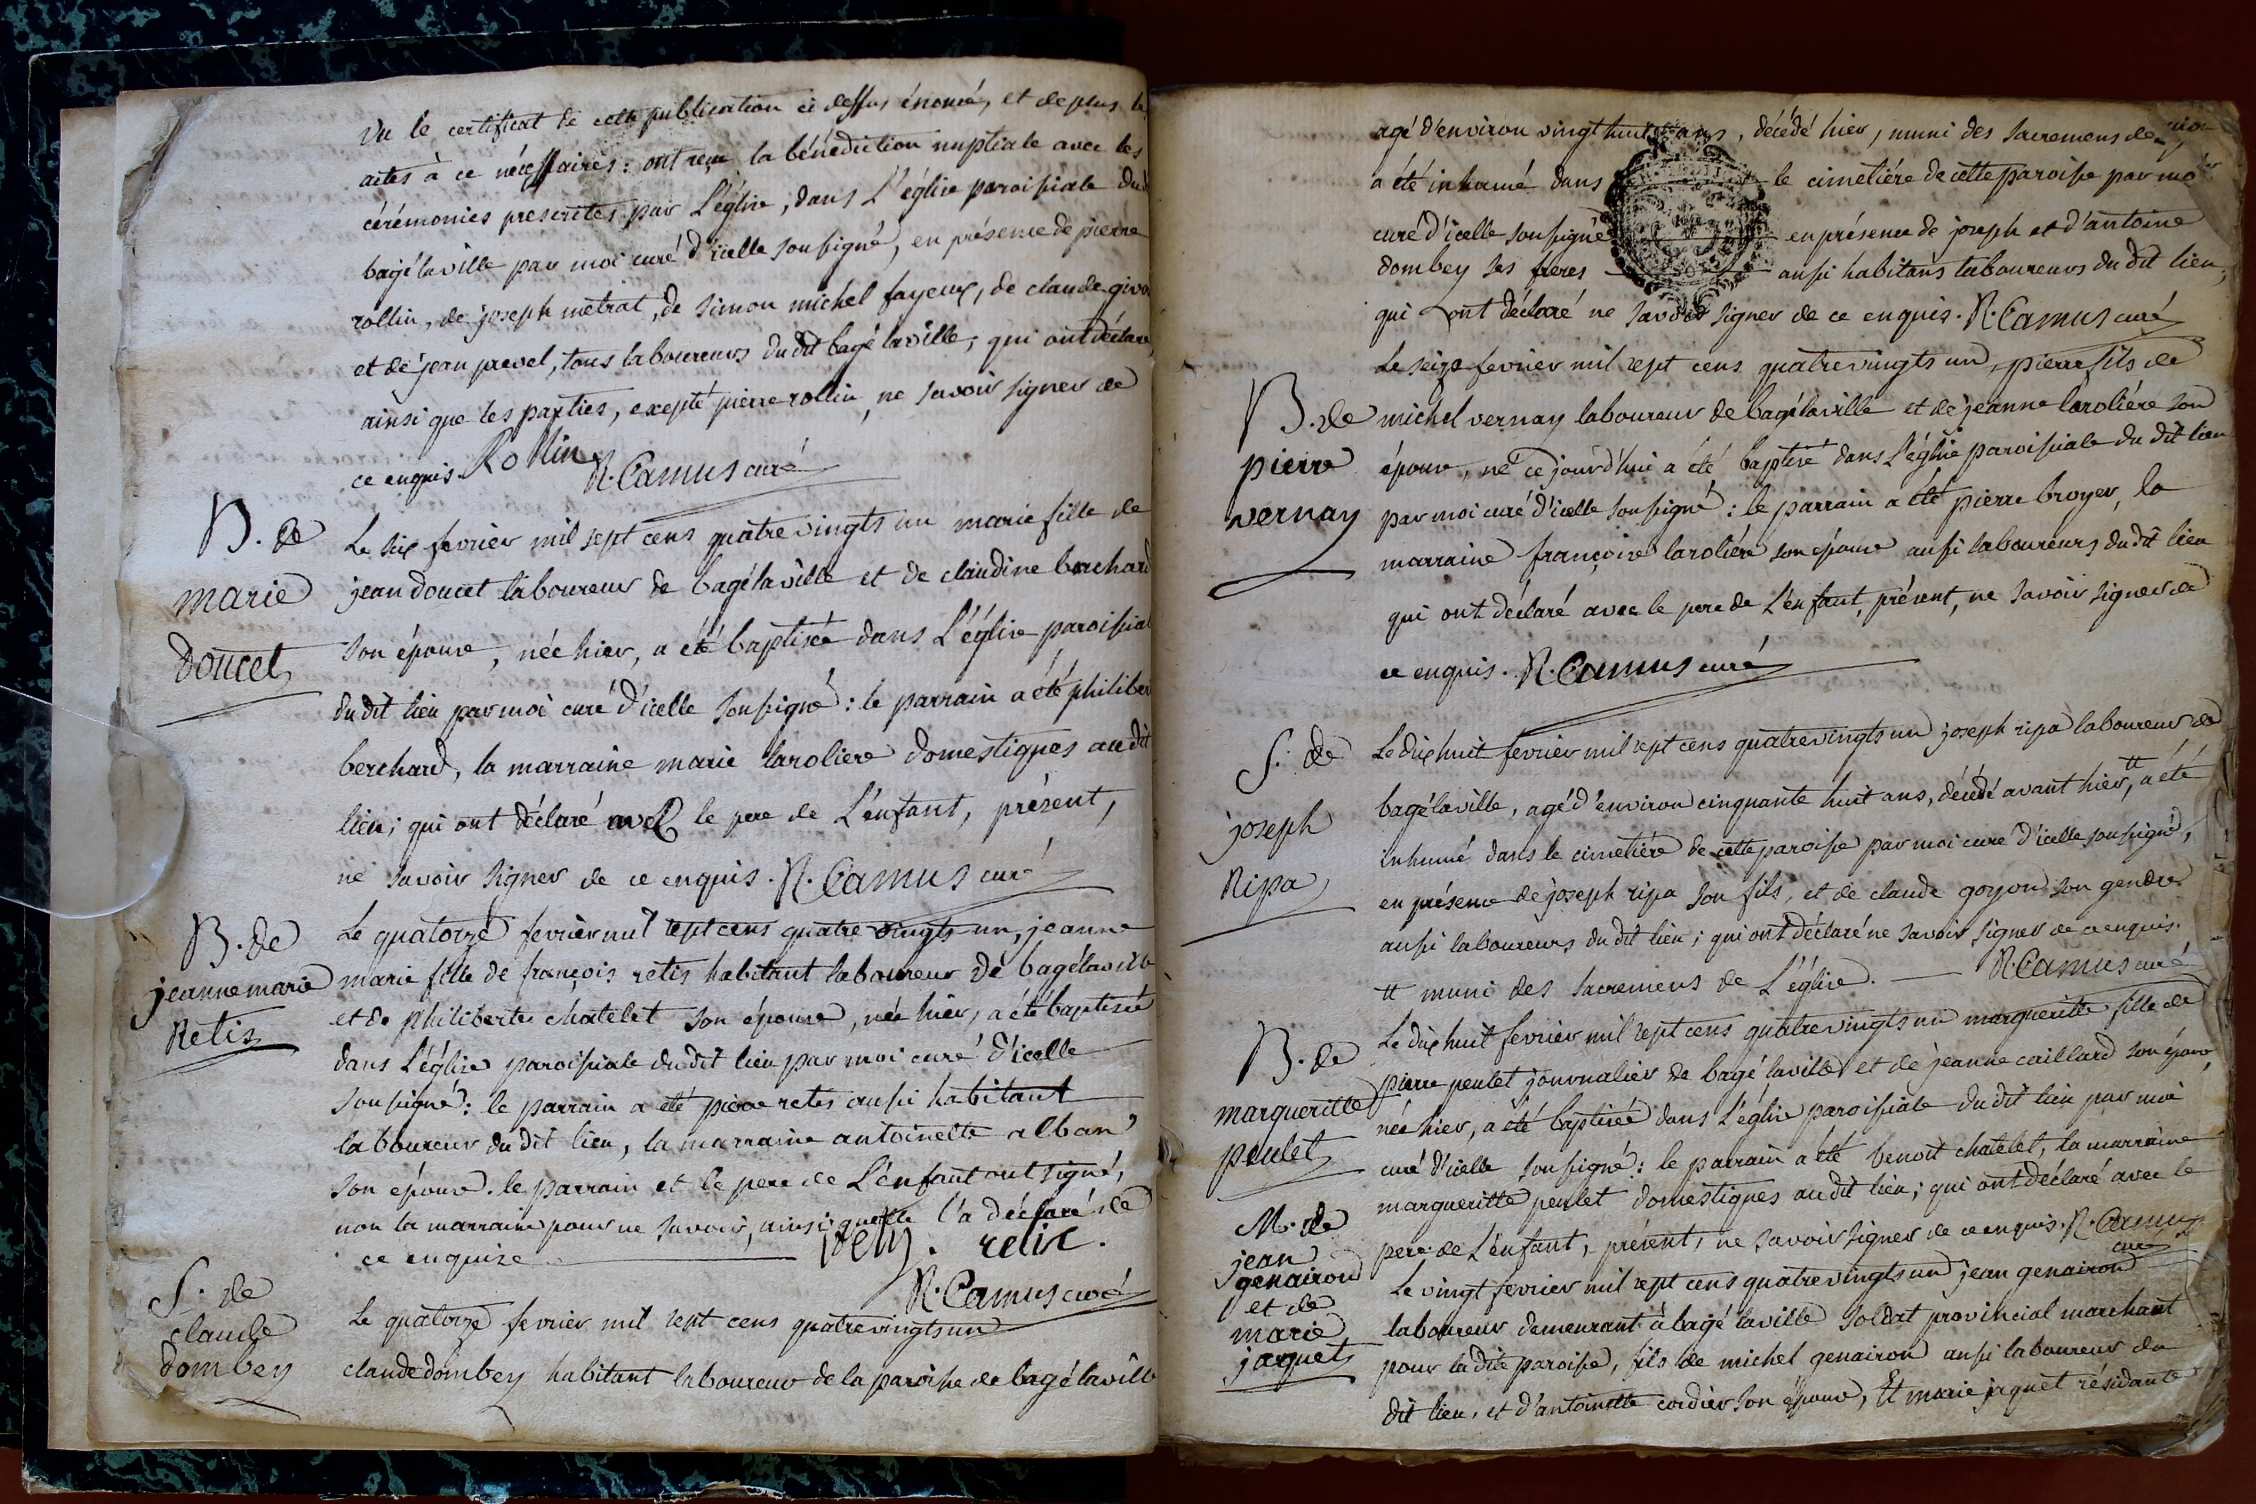 vu le certificat de cette publication ci dessus énoncé, et de plus les
actes à ce nécessaires: ont reçu la bénédiction nuptiale avec les
cérémonies prescrites par L'église, dans L'église paroissiale du dit
bagé la ville par moi curé d'icelle soussigné, en présence de pierre
rollin, de joseph métrat, de simon michel fayeux, de claude
et de jean prevel, tous laboureurs du dit bagé la ville, qui ont déclaré
ainsi que les parties, excepté pierre rollin, ne savoir signer de
ce enquis. Rollin R. Camus curé
B. de
marie
doucet
Le six fevrier mil sept cens quatre vingts un marie fille de
jean doucet laboureur de bagé la ville et de claudine berchard
son épouse, née hier, a été baptisée dans L'église paroissiale
du dit lieu par moi curé d'icelle soussigné: le parrain a été philibert
berchard, la marraine marie laroliere domestiques au dit
lieu; qui ont déclaré avec le pere de L'enfant, présent,
ne savoir signer de ce enquis. R. Camus curé
B. de
jeanne marie
Retis
Le quatorze fevrier mil sept cens quatre vingts un, jeanne
marie fille de françois retis habitant laboureur de bagé la ville
et de philiberte chatelet son épouse, née hier, a été baptisée
dans L'église paroissiale du dit lieu par moi curé d'icelle
soussigné: le parrain a été pierre retis aussi habitant
laboureur du dit lieu, la marraine antoinette alban
son épouse. le parrain et le pere de L'enfant ont signé,
non la marraine pour ne savoir, ainsi qu'elle l'a déclaré de
ce enquise retis. retis.
R. Camus curé
S. de
claude
dombey
Le quatorze fevrier mil sept cens quatre vingts un
claude dombey habitant laboureur de la paroisse de bagé la ville
agé d'environ vingt huit ans, décédé hier, muni des sacremens de
a été inhumé dans le cimetière de cette paroisse par moi
curé d'icelle soussigné en présence de joseph et d'antoine
dombey ses freres aussi habitans laboureurs du dit lieu,
qui ont déclaré ne savoir signer de ce enquis. R. Camus curé
B. de
pierre
vernay
Le seize fevrier mil sept cens quatre vingts un, pierre fils de
michel vernay laboureur de bagé la ville et de jeanne laroliére son
épouse, né ce jourd'hui a été baptisé dans L'église paroissiale du dit lieu
par moi curé d'icelle soussigné: le parrain a été pierre broyer, la
marraine françoise laroliére son épouse aussi laboureurs du dit lieu
qui ont déclaré avec le pere de L'enfant, présent, ne savoir signer de
ce enquis. R. Camus curé
S. de
joseph
Ripa
Le dix huit fevrier mil sept cens quatre vingts un joseph ripa laboureur de
bagé la ville, agé d'environ cinquante huit ans, décédé avant hier, tt a été
inhumé dans le cimetière de cette paroisse par moi curé d'icelle soussigné,
en présence de joseph ripa son fils, et de claude goyon son gendre
aussi laboureurs du dit lieu; qui ont déclaré ne savoir signer de ce enquis.
tt muni des sacremens de L'église. R. Camus curé
B. de
margueritte
peulet
Le dix huit fevrier mil sept cens quatre vingts un margueritte fille de
pierre peulet journalier de bagé la ville et de jeanne caillard son épouse
née hier, a été baptisée dans L'église paroissiale du dit lieu par moi
curé d'icelle soussigné: le parrain a été benoit chatelet, la marraine
margueritte peulet domestiques au dit lieu; qui ont déclaré avec le
pere de L'enfant, présent, ne savoir signer de ce enquis. R. Camus
curé
M. de
jean
genairon
et de
marie
jarquet
Le vingt fevrier mil sept cens quatre vingts un jean genairon
laboureur demeurant à bagé la ville soldat provincial marchant
pour la dite paroisse, fils de michel genairon aussi laboureur du
dit lieu, et d'antoinette cordier son épouse, Et marie jarquet résidante